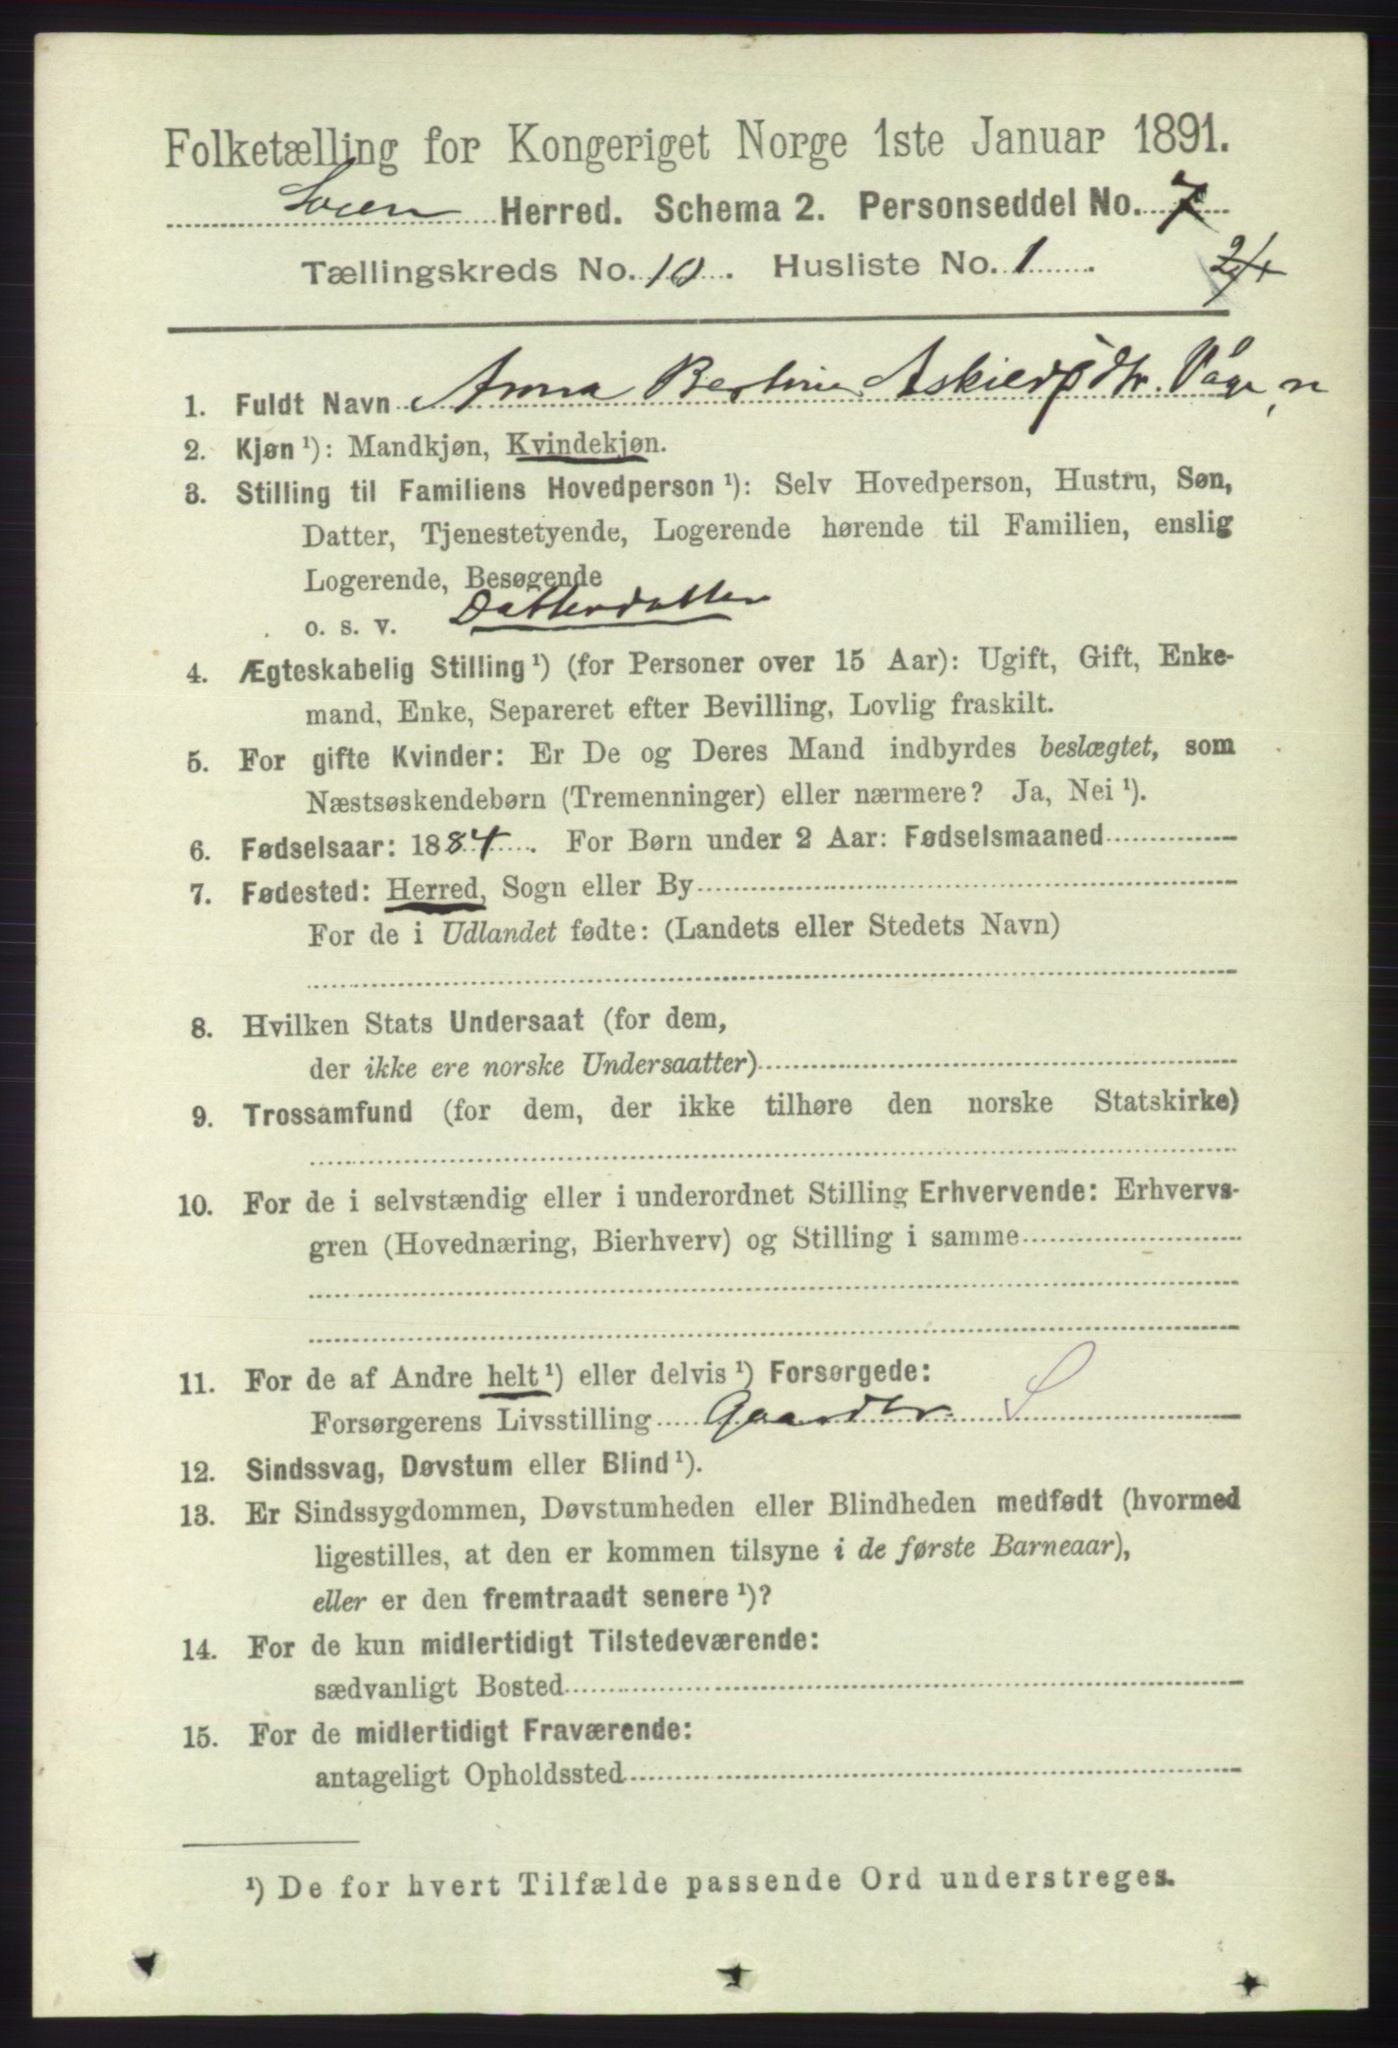 Folketælling for Kongeriget Norge 1ste Januar 1891.
Sveen Herred. Schema 2. Personseddel No. 7
Tællingskreds No. 10. Husliste No. 1
1. Fuldt Navn Anna Berline Askildsdtr. Vågen
2. Kjøn ¹): Mandkjøn, Kvindekjøn.
3. Stilling til Familiens Hovedperson ¹): Selv Hovedperson, Hustru, Søn,
Datter, Tjenestetyende, Logerende hørende til Familien, enslig
Logerende, Besøgende
o. s. v. Datterdatter
4. Ægteskabelig Stilling ¹) (for Personer over 15 Aar): Ugift, Gift, Enke-
mand, Enke, Separeret efter Bevilling, Lovlig fraskilt.
5. For gifte Kvinder: Er De og Deres Mand indbyrdes beslægtet, som
Næstsøskendebørn (Tremenninger) eller nærmere? Ja, Nei ¹).
6. Fødselsaar: 1884. For Børn under 2 Aar: Fødselsmaaned
7. Fødested: Herred, Sogn eller By
For de i Udlandet fødte: (Landets eller Stedets Navn)
8. Hvilken Stats Undersaat (for dem,
der ikke ere norske Undersaatter)
9. Trossamfund (for dem, der ikke tilhøre den norske Statskirke)
10. For de i selvstændig eller i underordnet Stilling Erhvervende: Erhvervs-
gren (Hovednæring, Bierhverv) og Stilling i samme
11. For de af Andre helt ¹) eller delvis ¹) Forsørgede:
Forsørgerens Livsstilling Gaardbr. S
12. Sindssvag, Døvstum eller Blind ¹).
13. Er Sindssygdommen, Døvstumheden eller Blindheden medfødt (hvormed
ligestilles, at den er kommen tilsyne i de første Barneaar),
eller er den fremtraadt senere ¹)?
14. For de kun midlertidigt Tilstedeværende:
sædvanligt Bosted
15. For de midlertidigt Fraværende:
antageligt Opholdssted
¹) De for hvert Tilfælde passende Ord understreges.